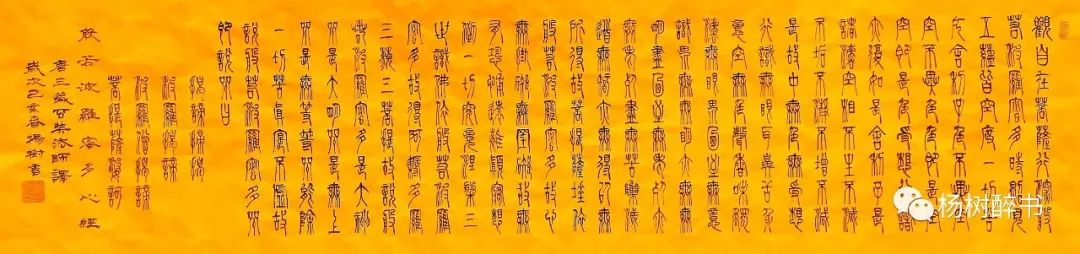 觀自在菩薩行深般
若波羅蜜多時照見
五蘊皆空度一切苦
厄舍利子色不異空
空不異色色即是空
空即是色受想行識
亦復如是舍利子是
諸法空相不生不滅
不垢不淨不增不減
是故空中無色無受想
行識無眼耳鼻舌身
意無色聲香味觸
法無眼界乃至無意
識界無無明亦無無
明盡乃至無老死亦
無老死盡無苦集滅
道無智亦無得以無
所得故菩提薩埵依
般若波羅蜜多故心
無罣礙無罣礙故無
有恐怖遠離顛倒夢想
究竟涅槃三
世諸佛依般若波羅
蜜多故得阿耨多羅
三藐三菩提故知般
若波羅蜜多是大神
咒是大明咒是無上
咒是無等等咒能除
一切苦真實不虛故
說般若波羅蜜多咒
即說咒曰
揭諦揭諦
波羅揭諦
波羅僧揭諦
菩提薩婆訶
般若波羅蜜多心經
唐三藏玄奘法師譯
歲次己亥春楊樹書
杨树醉书